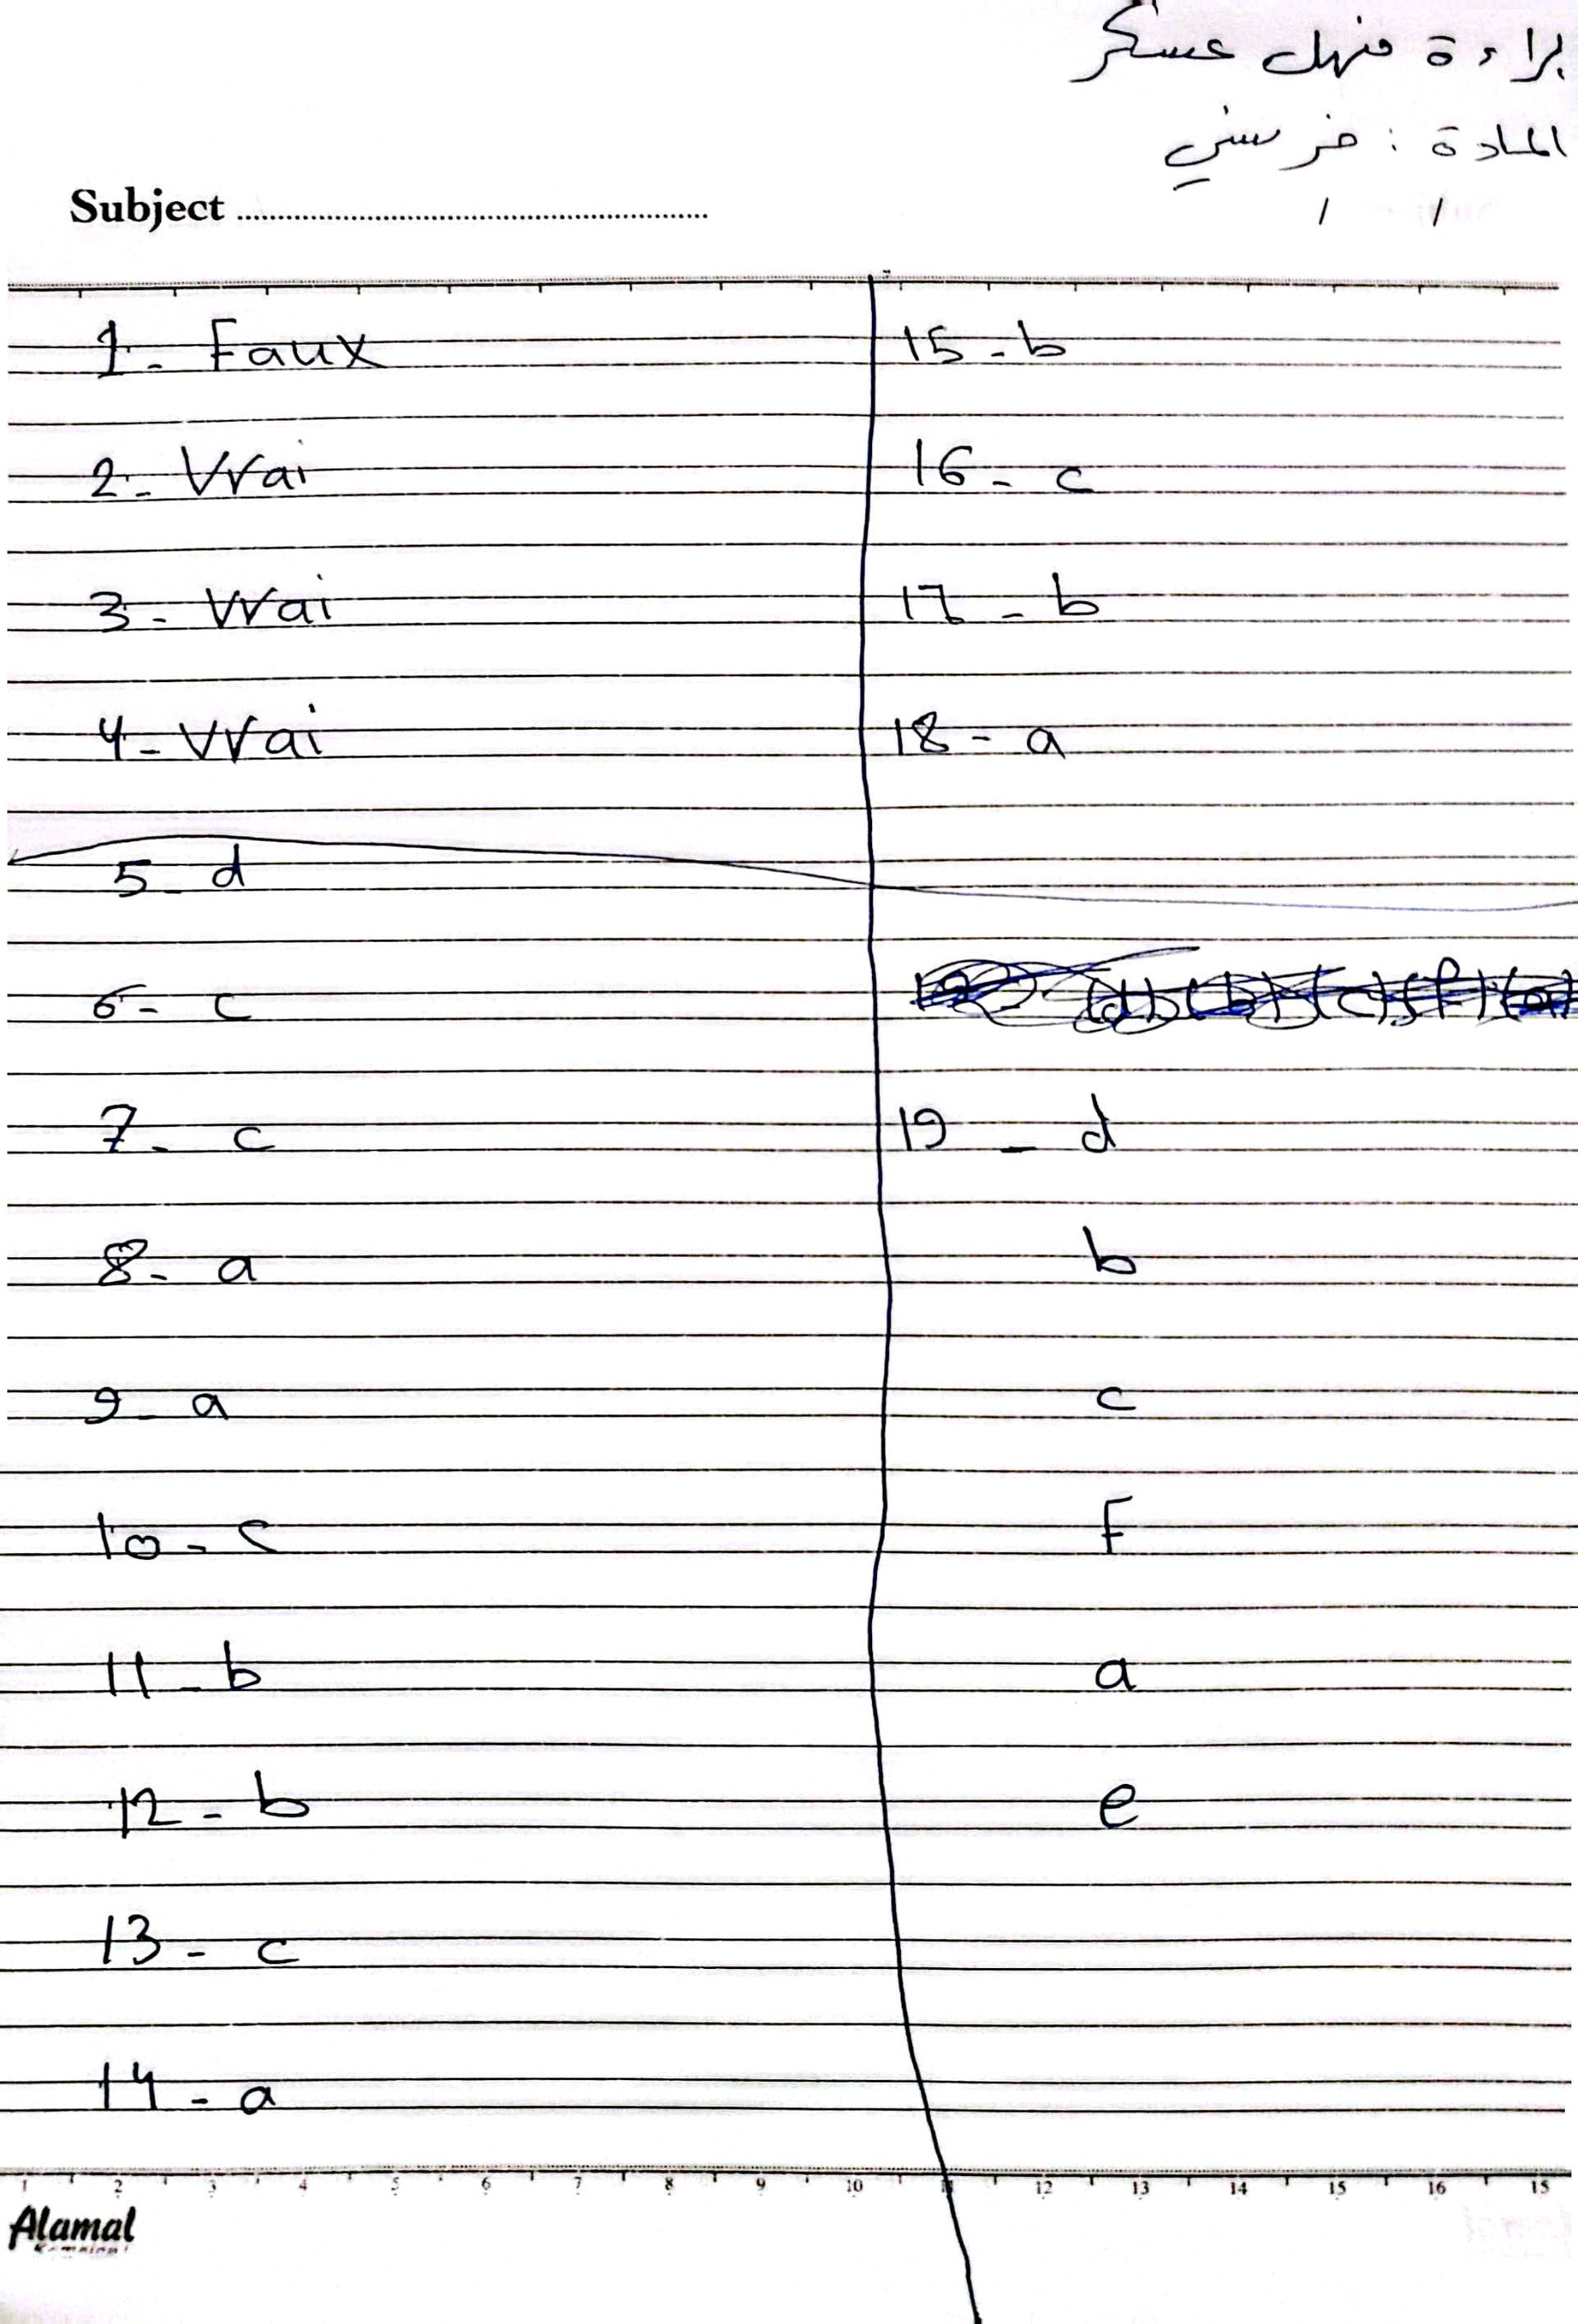 براءة منهل عسكر
المادة : فرنسي
Subject ........................................................
/ /
1- Faux
2- Vrai
3- Vrai
4- Vrai
5- d
6- c
7- c
8- a
9- a
10- c
11- b
12- b
13- c
14- a
15- b
16- c
17- b
18- a
19- d
b
c
F
a
e
1 2 3 4 5 6 7 8 9 10 11 12 13 14 15 16 15
Alamal